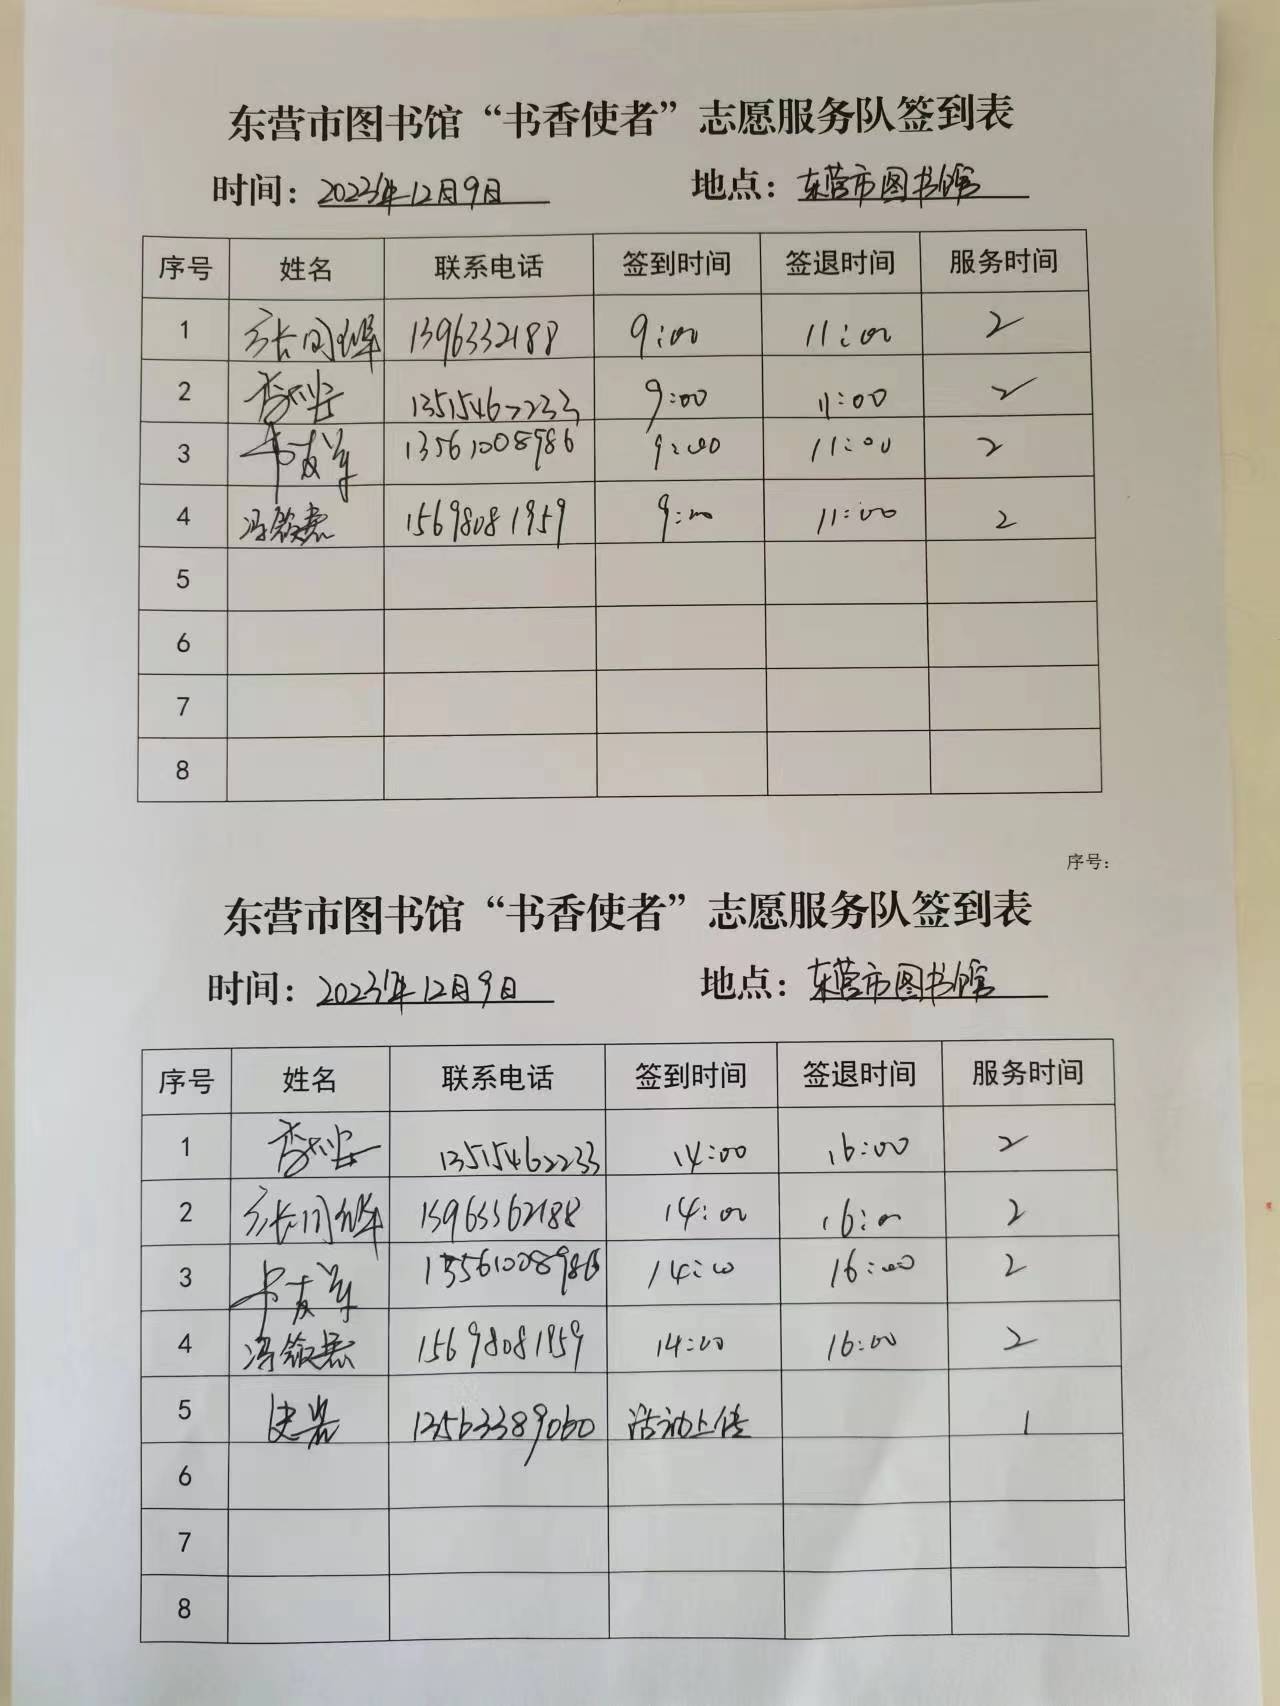 东营市图书馆“书香使者”志愿服务队签到表
时间：2023年12月9日 地点：东营市图书馆
序号 姓名 联系电话 签到时间 签退时间 服务时间
1 1396332188 9:00 11:00 2
2 13515462233 9:00 11:00 2
3 卞友军 13561008986 9:00 11:00 2
4 冯敛春 15698081959 9:00 11:00 2
5
6
7
8
序号：
东营市图书馆“书香使者”志愿服务队签到表
时间：2023年12月9日 地点：东营市图书馆
序号 姓名 联系电话 签到时间 签退时间 服务时间
1 13515462233 14:00 16:00 2
2 14:00 16:00 2
3 卞友军 13561008986 14:00 16:00 2
4 15698081959 14:00 16:00 2
5 史岩 13563389060 活动上传 1
6
7
8